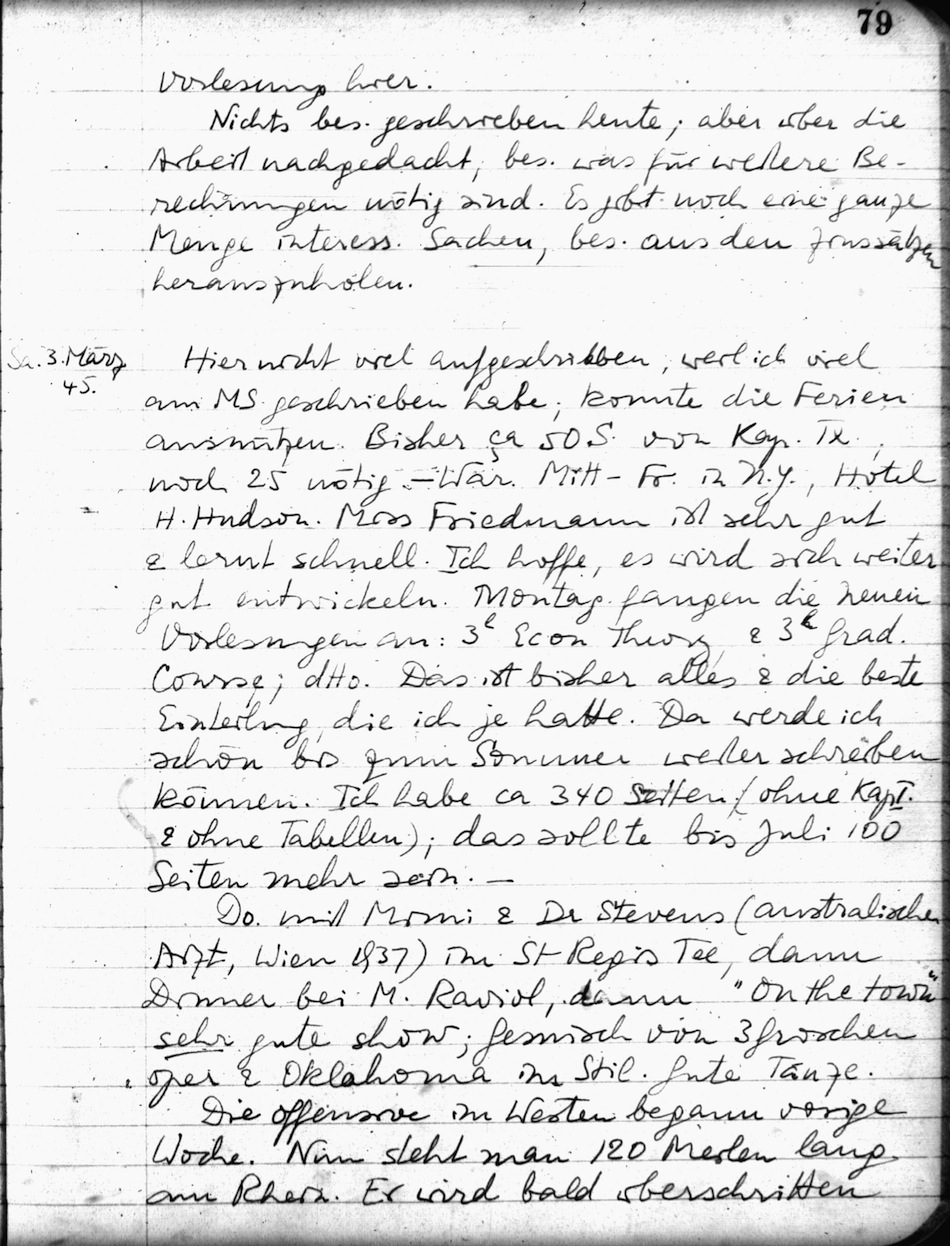 79
Vorlesung hier.
Nichts bes. geschrieben heute; aber über die
Arbeit nachgedacht, bes. was für weitere Be-
rechnungen nötig sind. Es gibt noch eine ganze
Menge interess. Sachen, bes. aus den Zinssätzen
herauszuholen.
Sa. 3. März
45.
Hier nicht viel aufgeschrieben, weil ich viel
am MS geschrieben habe; konnte die Ferien
ausnützen. Bisher ca 50 S. von Kap. IX.,
noch 25 nötig. – War Mitt – Fr. in N.Y., Hotel
H. Hudson. Miss Friedmann ist sehr gut
& lernt schnell. Ich hoffe, es wird sich weiter
gut entwickeln. Montag fangen die neuen
Vorlesungen an: 3h Econ Theory & 3h Grad.
Course; dtto. Das ist bisher alles & die beste
Einteilung, die ich je hatte. Da werde ich
schön bis zum Sommer weiter schreiben
können. Ich habe ca 340 Seiten (ohne Kap I.
& ohne Tabellen); das sollte bis Juli 100
Seiten mehr sein. –
Do. mit & Dr Stevens (australischer
Arzt, Wien 1937) im St Regis Tee, dann
Dinner bei M. Raviol, dann "On the town"
sehr gute show; Gemisch von 3groschen
oper & Oklahoma im Stil. Gute Tänze.
Die Offensive im Westen begann vorige
Woche. Nun steht man 120 Meilen lang
am Rhein. Er wird bald überschritten